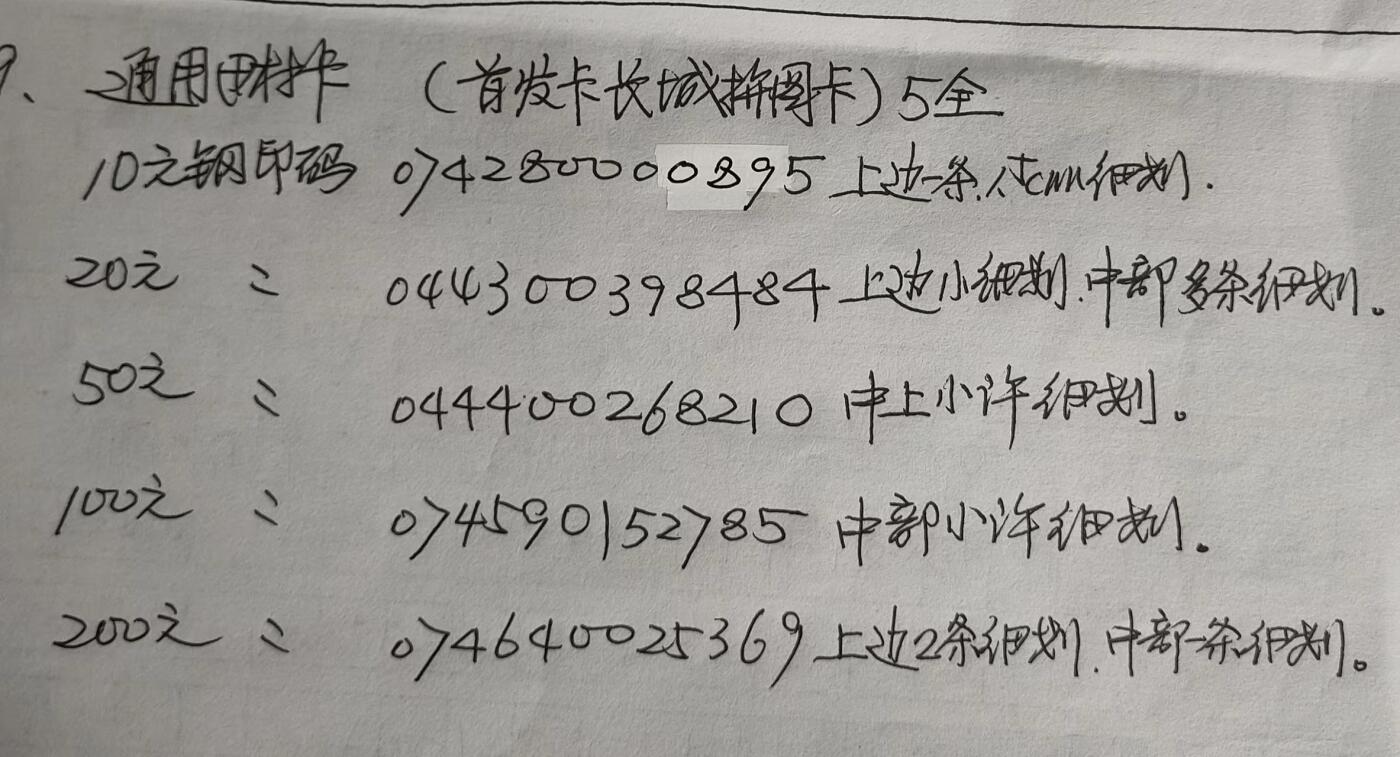 9、通用田村卡 (首发卡长城拼图卡) 5全
10元钢印码 074280000895 上边一条.1寸cm细划.
20元 〃 044300398484 上边小细划.中部多条细划。
50元 〃 044400268210 中上小许细划。
100元 〃 074590152785 中部小许细划.
200元 〃 074640025369 上边2条细划.中部一条细划。